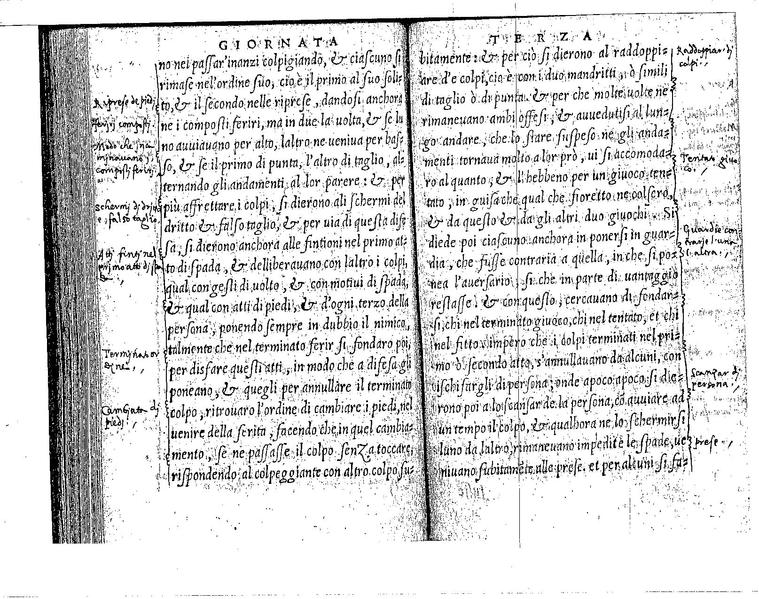 GIORNATA
no nei passar'inanzi colpigiando, & ciascuno si
rimase nel'ordine suo, cio è il primo al suo soli-
to, & il secondo nelle riprese, dandosi anchora
ne i composti feriri, ma in due la uolta, & se lu
no auuiauano per alto, laltro ne ueniua per bas-
so, & se il primo di punta, l'altro di taglio, al-
ternando gli andamenti, al lor parere: & per
più affrettare i colpi, si dierono ali schermi del
dritto & falso taglio, & per uia di questa dife
sa, si dierono anchora alle fintioni nel primo at-
to di spada, & delliberauano con laltro i colpi,
qual con gesti di uolto, & con motiui di spada,
& qual con atti di piedi, & d'ogni terzo della
persona, ponendo sempre in dubbio il nimico,
talmente che nel terminato ferir si fondaro poi,
per disfare questi atti, in modo che a difesa gli
poneano, & quegli per annullare il terminato
colpo, ritrouaro l'ordine di cambiare i piedi, nel
uenire della ferita, facendo che in quel cambia-
mento, se ne passasse il colpo senza toccare,
rispondendo al colpeggiante con altro colpo su-
Riprese de piedi
feriri composti
schermi di dritto
e falso taglio
Atti finti nel
primo atto di
Cambiare di
piedi
TERZA
bitamente: & per ciò si dierono al raddoppi-
are d'e colpi, cio è con i duo mandritti, ò simili
di taglio ò di punta. & per che molte uolte ne
rimaneuano ambi offesi, & auuedutisi al lun-
go andare, che lo stare suspeso ne gli anda-
menti tornaua molto a lor prò, ui si accomoda-
ro alquanto, & l'hebbeno per un giuoco ten-
tato, in guisa che qual che fioretto ne colsero,
& da questo & da gli altri duo giuochi. Si
diede poi ciascuno anchora in ponersi in guar-
dia, che fusse contraria a quella, in che si po-
nea l'auersario, si che in parte di uantaggio
restasse: & con questo, cercauano di fondar-
si, chi nel terminato giuoco, chi nel tentato, et chi
nel fitto. impero che i colpi terminati nel pri-
mo ò secondo atto, s'annullauano da alcuni, con
ischifar gli di persona, onde apoco apoco si die-
rono poi a lo scansar de la persona, cò auuiare ad
un tempo il colpo, & qualhora ne lo schermir si
luno da laltro, rimaneuano impedite le spade, ue
niuano subitamẽte alle prese. et per alcuni si fu-
Raddoppiar di
colpi.
Tentar giuo
co.
Guardie con
trarie l'una
l'altera.
Scansar di
persona.
prese.